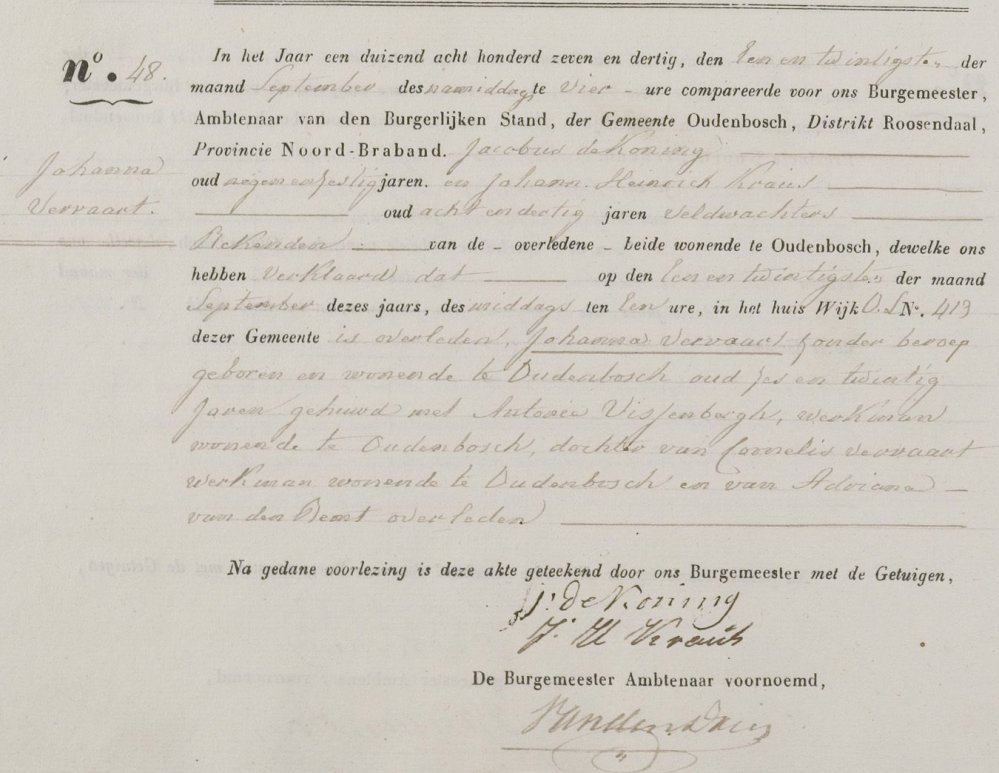 nº. 48.
In het Jaar een duizend acht honderd zeven en dertig, den Een en twintigste der
maand September des namiddags te vier ure compareerde voor ons Burgemeester,
Ambtenaar van den Burgerlijken Stand, der Gemeente Oudenbosch, Distrikt Roosendaal,
Provincie Noord-Braband. Jacobus de Koning
Johanna
Vervaart.
oud negen en zestig jaren. en Johann Heinrich Kraus
oud acht en dertig jaren veldwachters
Bekenden van de overledene beide wonende te Oudenbosch, dewelke ons
hebben verklaard dat op den Een en twintigste der maand
September dezes jaars, des middags ten Een ure, in het huis Wijk O. L Nº. 413
dezer Gemeente is overleden, Johanna Vervaart zonder beroep
geboren en wonende te Oudenbosch oud zes en twintig
Jaren gehuwd met Antonie Vissenbergh, werkman
wonende te Oudenbosch, dochter van Cornelis Vervaart
werkman wonende te Oudenbosch en van Adriana
van den Bemt overleden
Na gedane voorlezing is deze akte geteekend door ons Burgemeester met de Getuigen,
J. de Koning
J. H Kraus
De Burgemeester Ambtenaar voornoemd,